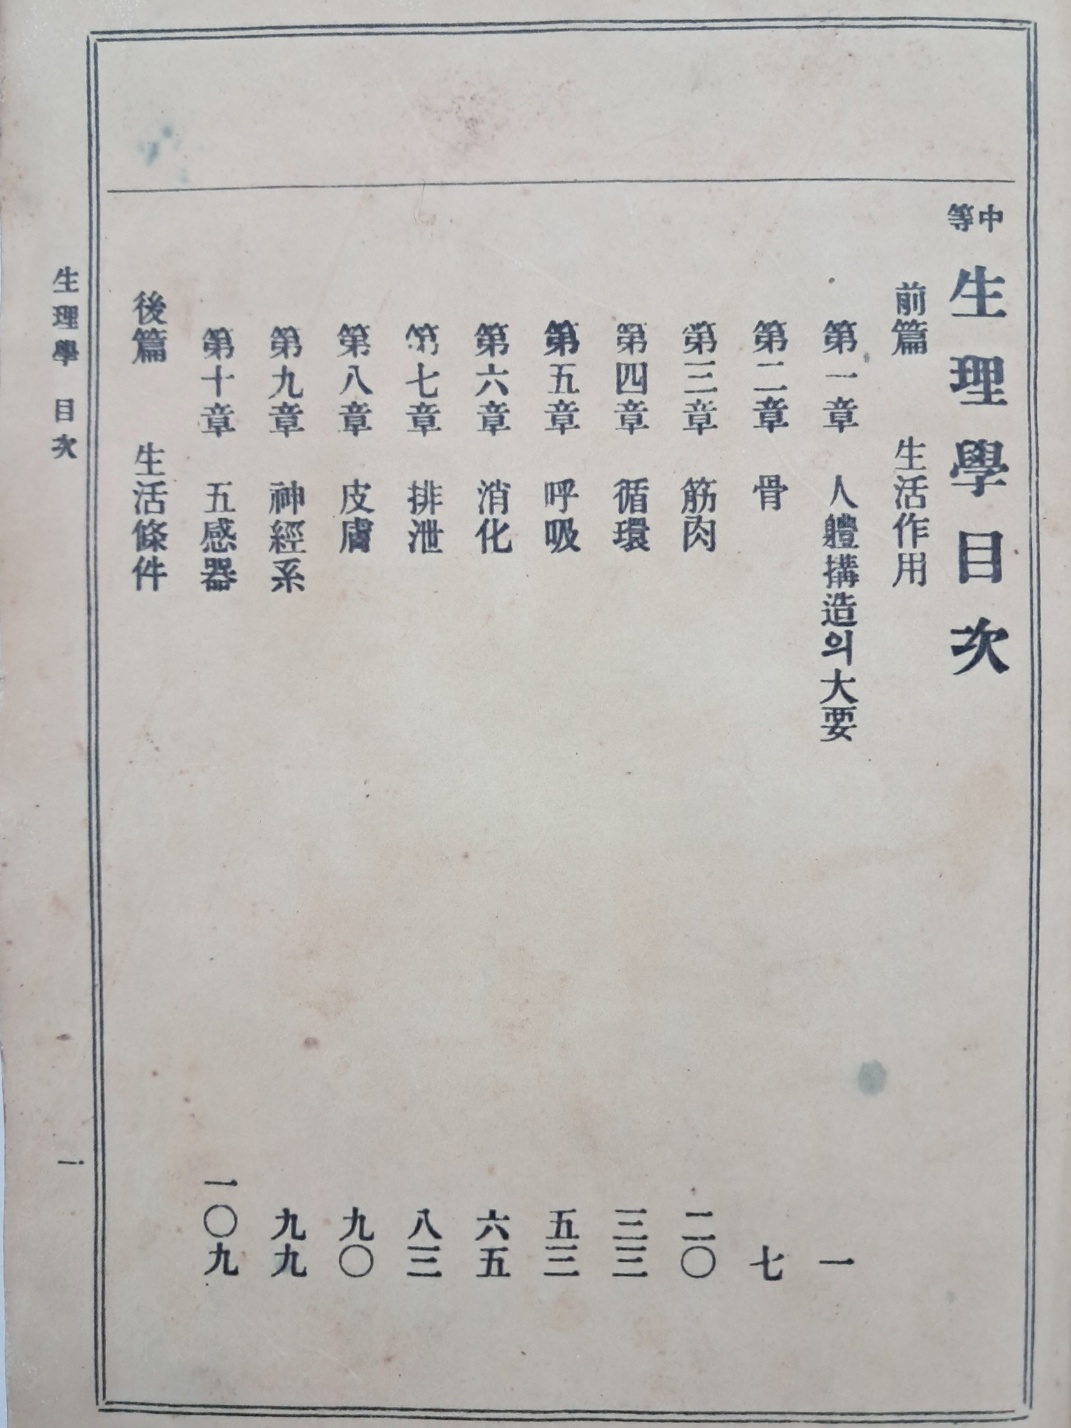 中等 生理學目次
前篇 生活作用
第一章 人體搆造의大要 一
第二章 骨 七
第三章 筋肉 二〇
第四章 循環 三三
第五章 呼吸 五三
第六章 消化 六五
第七章 排泄 八三
第八章 皮膚 九〇
第九章 神經系 九九
第十章 五感器 一〇九
後篇 生活條件
生理學 目次 一